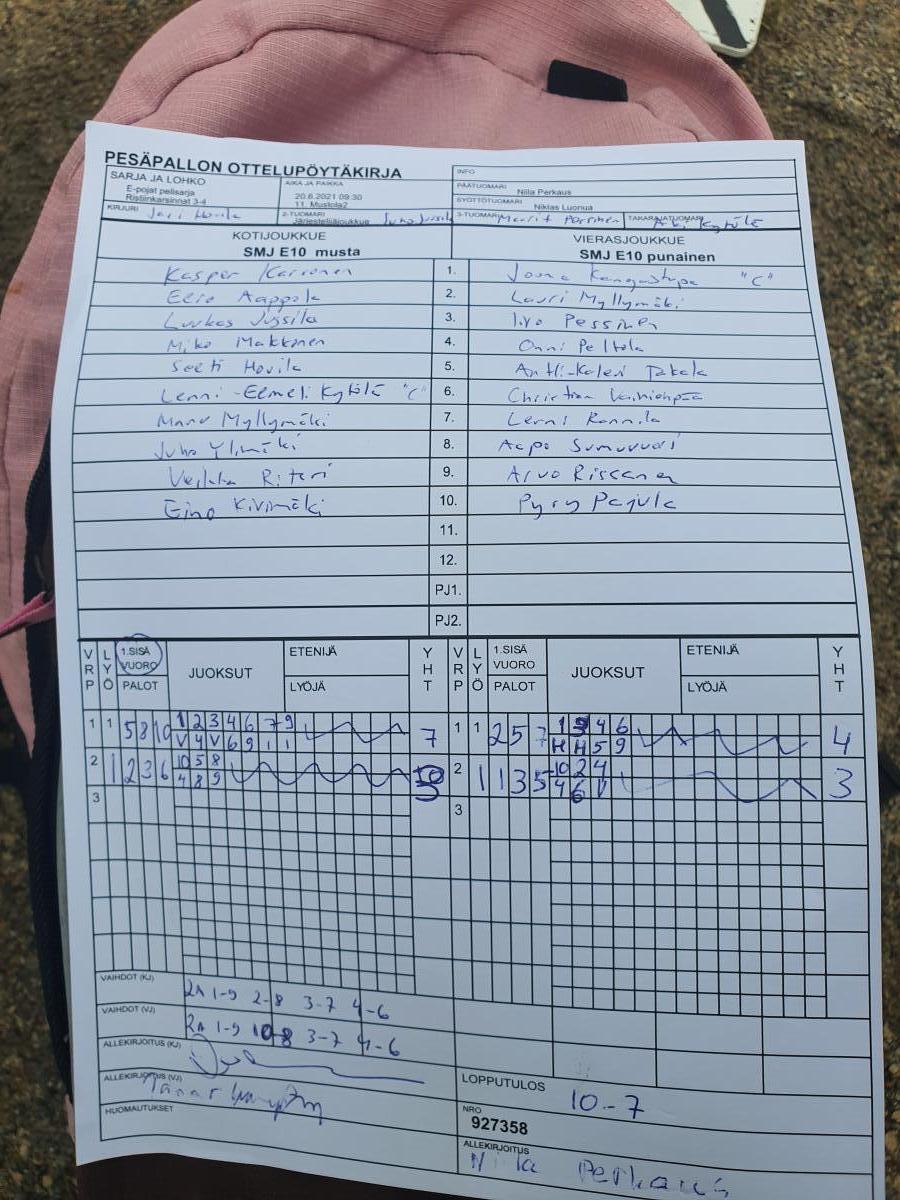 PESÄPALLON OTTELUPÖYTÄKIRJA
SARJA JA LOHKO
E-pojat pelisarja
Ristiinkarsinnat 3-4
AIKA JA PAIKKA
20.6.2021 09:30
11. Mustola2
INFO
PÄÄTUOMARI
Niila Perkaus
SYÖTTÖTUOMARI
Niklas Luonua
KIRJURI Jari Hovila
2-TUOMARI Järjestelijäjoukkue Juha Jussila
3-TUOMARI
TAKARAJATUOMARI Aki Kytölä
KOTIJOUKKUE
SMJ E10 musta
VIERASJOUKKUE
SMJ E10 punainen
Kasper Karvonen 1. Joona Kangastupa "C"
Eelio Aappola 2. Lauri Myllymäki
Luukas Jussila 3. Iivo Pessinen
Miko Makkonen 4. Onni Peltola
Seeti Hovila 5. Antti-Kalevi Takala
Lenni-Eemeli Kytölä "C" 6. Christian Vainionpää
Manu Myllymäki 7. Lenni Rannila
Juho Ylimäki 8. Aapo Sumuvuori
Veikka Riteri 9. Arvo Rissanen
Eino Kivimäki 10. Pyry Pajula
11.
12.
PJ1.
PJ2.
VRP LYÖ 1.SISÄ VUORO PALOT JUOKSUT ETENIJÄ LYÖJÄ YHT VRP LYÖ 1.SISÄ VUORO PALOT JUOKSUT ETENIJÄ LYÖJÄ YHT
1 1 5 8 10 1 2 3 4 6 7 9 7 1 1 2 5 7 1 3 4 6 4
V 4 V 6 9 1 1 H H 5 9
2 1 2 3 6 10 5 8 3 2 1 1 3 5 10 2 4 3
4 8 9 4 6 V
3 3
VAIHDOT (KJ) 2A 1-9 2-8 3-7 4-6
VAIHDOT (VJ) 2A 1-9 10-8 3-7 4-6
ALLEKIRJOITUS (KJ)
ALLEKIRJOITUS (VJ)
HUOMAUTUKSET
LOPPUTULOS
10-7
NRO
927358
ALLEKIRJOITUS
Niila Perkaus